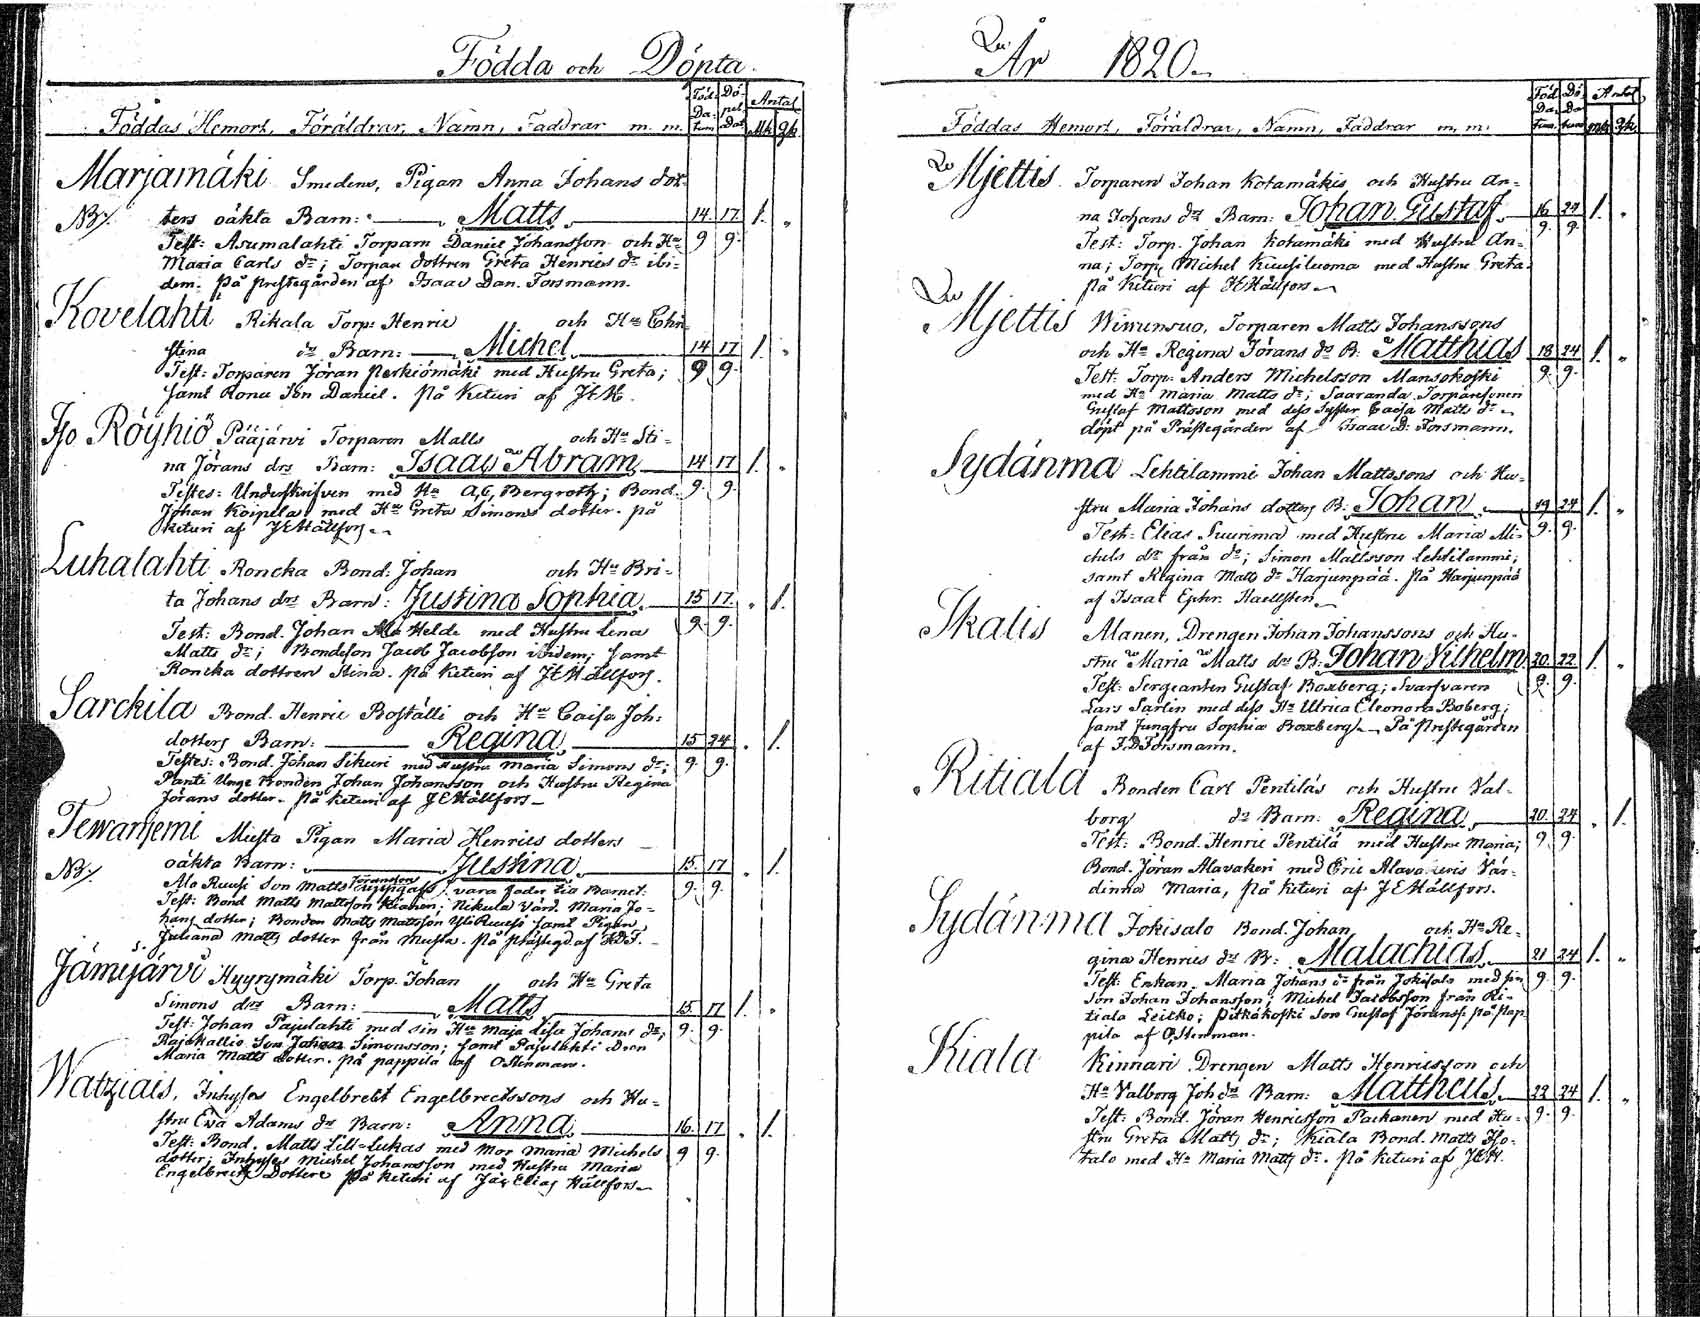 Födda och Döpta
Föddas Hemort, Föräldrar, Namn, Faddrar m. m.
Föd: Datum
Döpel Dat
Antal
Mk Qk
Marjamäki Smedens, Pigan Anna Johans dot-
NB/. ters oäkta Barn: Matts 14 17 1. "
Test: Asumalahti Torparn Daniel Johansson och Hu 9 9.
Maria Carls dr; Torpar dottren Greta Henrics dr ibi-
dem. På prestegården af Isaac Dan. Forsmann.
Kovelahti Rikala Torp: Henric och Hu Chri
stina dr Barn: Michel 14 17 1. "
Test: Torparen Jöran Perkiömäki med Hustru Greta; 9 9.
samt Ronu Son Daniel. På Keturi af JEH.
Iso Röyhiö Pääjärvi Torparen Matts och Hu Sti-
na Jörans drs Barn: Isaac Abram 14 17 1. "
Testes: Underskrifven med Hu A,C, Bergroth; Bond. 9. 9.
Johan Koipila med Hu Greta Simons dotter. på
keturi af JEHällfors
Luhalahti Roncka Bond: Johan och Hu Bri-
ta Johans drs Barn: Justina Sophia 15 17. " 1.
Test: Bond. Johan Ala Helde med Hustru Lena 9. 9.
Matts dr; Bondeson Jacob Jacobson ibidem; samt
Roncka dottren Stina. På Keturi af JEHällfors.
Sarckila Bond. Henric Boställi och Hu Caisa Joh:
dotters Barn: Regina 15 24 " 1.
Testes: Bond. Johan Sikuri med Hustru Maria Simons dr; 9. 9.
Panti Unge Bonden Johan Johansson och Hustru Regina
Jörans dotter. På keturi af JEHällfors
Tewaniemi Musta Pigan Maria Henrics dotters
NB/. oäkta Barn: Justina 15. 17 " 1.
Ala Ruusi Son Matts Jöransson uppgafs vara fader till Barnet. 9. 9.
Test: Bond Matts Mattsson Kianen; Nikula Värd. Maria Jo-
hans dotter; Bonden Matts Mattsson Yli Ruusi samt Pigan
Juliana Matts dotter från Musta. På Prästegd af IDF.
Jämijärvi Hyyrymäki Torp. Johan och Hu Greta
Simons drs Barn: Matts 15. 17 1. "
Test: Johan Pajulahti med sin Hu Maja Lisa Johans dr; 9. 9.
Rajakallio Son Johan Simonsson; samt Pajulahti Dren
Maria Matts dotter. på pappila af OStenman.
Watziais, Inhyses Engelbrect Engelbrectssons och Hu-
stru Eva Adams dr Barn: Anna 16. 17 " 1.
Test: Bond. Matts Lill-Lukas med Mor Maria Michels 9 9.
dotter; Inhyses Michel Johansson med Hustru Maria
Engelbrects Dotter på keturi af Jac Elias Hällfors
År 1820
Föddas Hemort, Föräldrar, Namn, Faddrar m, m:
Föd Datum
Antal
Mk Qk
Mjettis Torparen Johan Kotamäkis och Hustru An-
na Johans drs Barn: Johan Gustaf 16 24 1. "
Test: Torp. Johan Kotamäki med Hustru An- 9. 9.
na; Torp. Michel Kuusiluoma med Hustru Greta.
På Keturi af JEHällfors
Mjettis Wirrunsuo, Torparen Matts Johanssons
och Hu Regina Jörans dr B: Matthias 18 24 1. "
Test: Torp: Anders Michelsson Mansokoski 9. 9.
med Hu Maria Matts dr; Saaranda Torparesonen
Gustaf Mattsson med dess Syster Caisa Matts dr
döpt på Prästegården af Isaac D: Forsmann.
Sydänma Lehtilammi Johan Mattssons och Hu-
stru Maria Johans dotters B: Johan 19 24 1. "
Test: Elias Suurima med Hustru Maria Mi- 9. 9.
chels dr från dr; Simon Mattsson Lehtilammi;
samt Regina Matts dr Harjunpää. På Harjunpää
af Isaac Ephr. Haellsten
Skalis Manen, Drengen Johan Johanssons och Hu-
stru Maria Matts drs B: Johan Vilhelm 20. 22 1. "
Test: Sergeanten Gustaf Boxberg; Svarfvaren 9. 9.
Lars Sarlin med dess Hu Ulrica Eleonora Boberg;
samt Jungfru Sophia Boxberg. På Prestegården
af I.DForsmann.
Ritiala Bonden Carl Pentiläs och Hustru Val-
borg dr Barn: Regina 20. 24 " 1.
Test: Bond. Henric Pentilä med Hustru Maria; 9 9.
Bond. Jöran Alavakeri med Eric Alavakeris Vär-
dinna Maria, på keturi af JEHällfors.
Sydänma Jokisalo Bond. Johan och Hu Re-
gina Henrics dr B: Malachias 21 24 1. "
Test: Enkan Maria Johans dr från Jokisalo med sin 9 9.
Son Johan Johansson; Michel Jacobsson från Ri-
tiala Leitko; Pitkäkoski Son Gustaf Jöranss: på Pap-
pila af OStenman.
Kiala Kinnari Drengen Matts Henricsson och
Hu Valborg Joh drs Barn: Mattheus 22 24 1. "
Test: Bond. Jöran Henricsson Packanen med Hu- 9. 9.
stru Greta Matts dr; Kiala Bond. Matts Iso-
talo med Hu Maria Matts dr. På keturi af JEH.